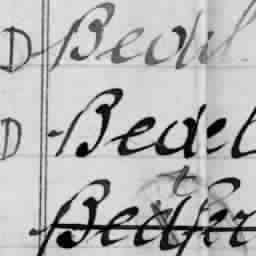 D Bedel
D - Bedel
- Bedfer